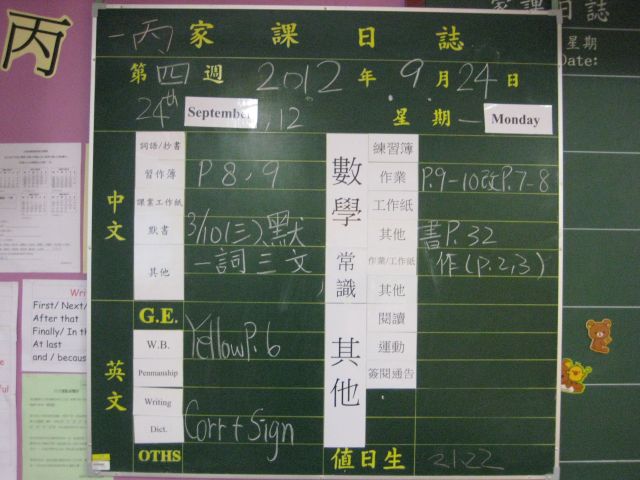 丙
一丙 家課日誌
第四週 2012年9月24日
24th September, 12 星期一 Monday
中文
詞語/抄書
習作簿 P 8, 9
課業工作紙
默書 3/10(三)默
其他 一詞三文
數學
練習簿
作業 P.9-10改P.7-8
工作紙
其他 書P.32
常識
作業/工作紙 作(P.2,3)
其他
英文
G.E.
W.B. Yellow P.6
Penmanship
Writing
Dict. Corr + Sign
OTHS
其他
閱讀
運動
簽閱通告
值日生 21 22
家課日誌
星期
Date:
First/ Next/
After that
Finally/ In th
At last
and / becaus